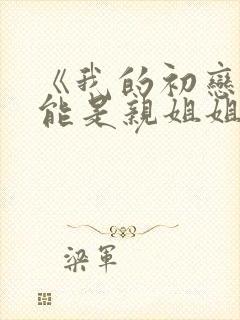 《我的初戀
能是親姐姐
梁軍